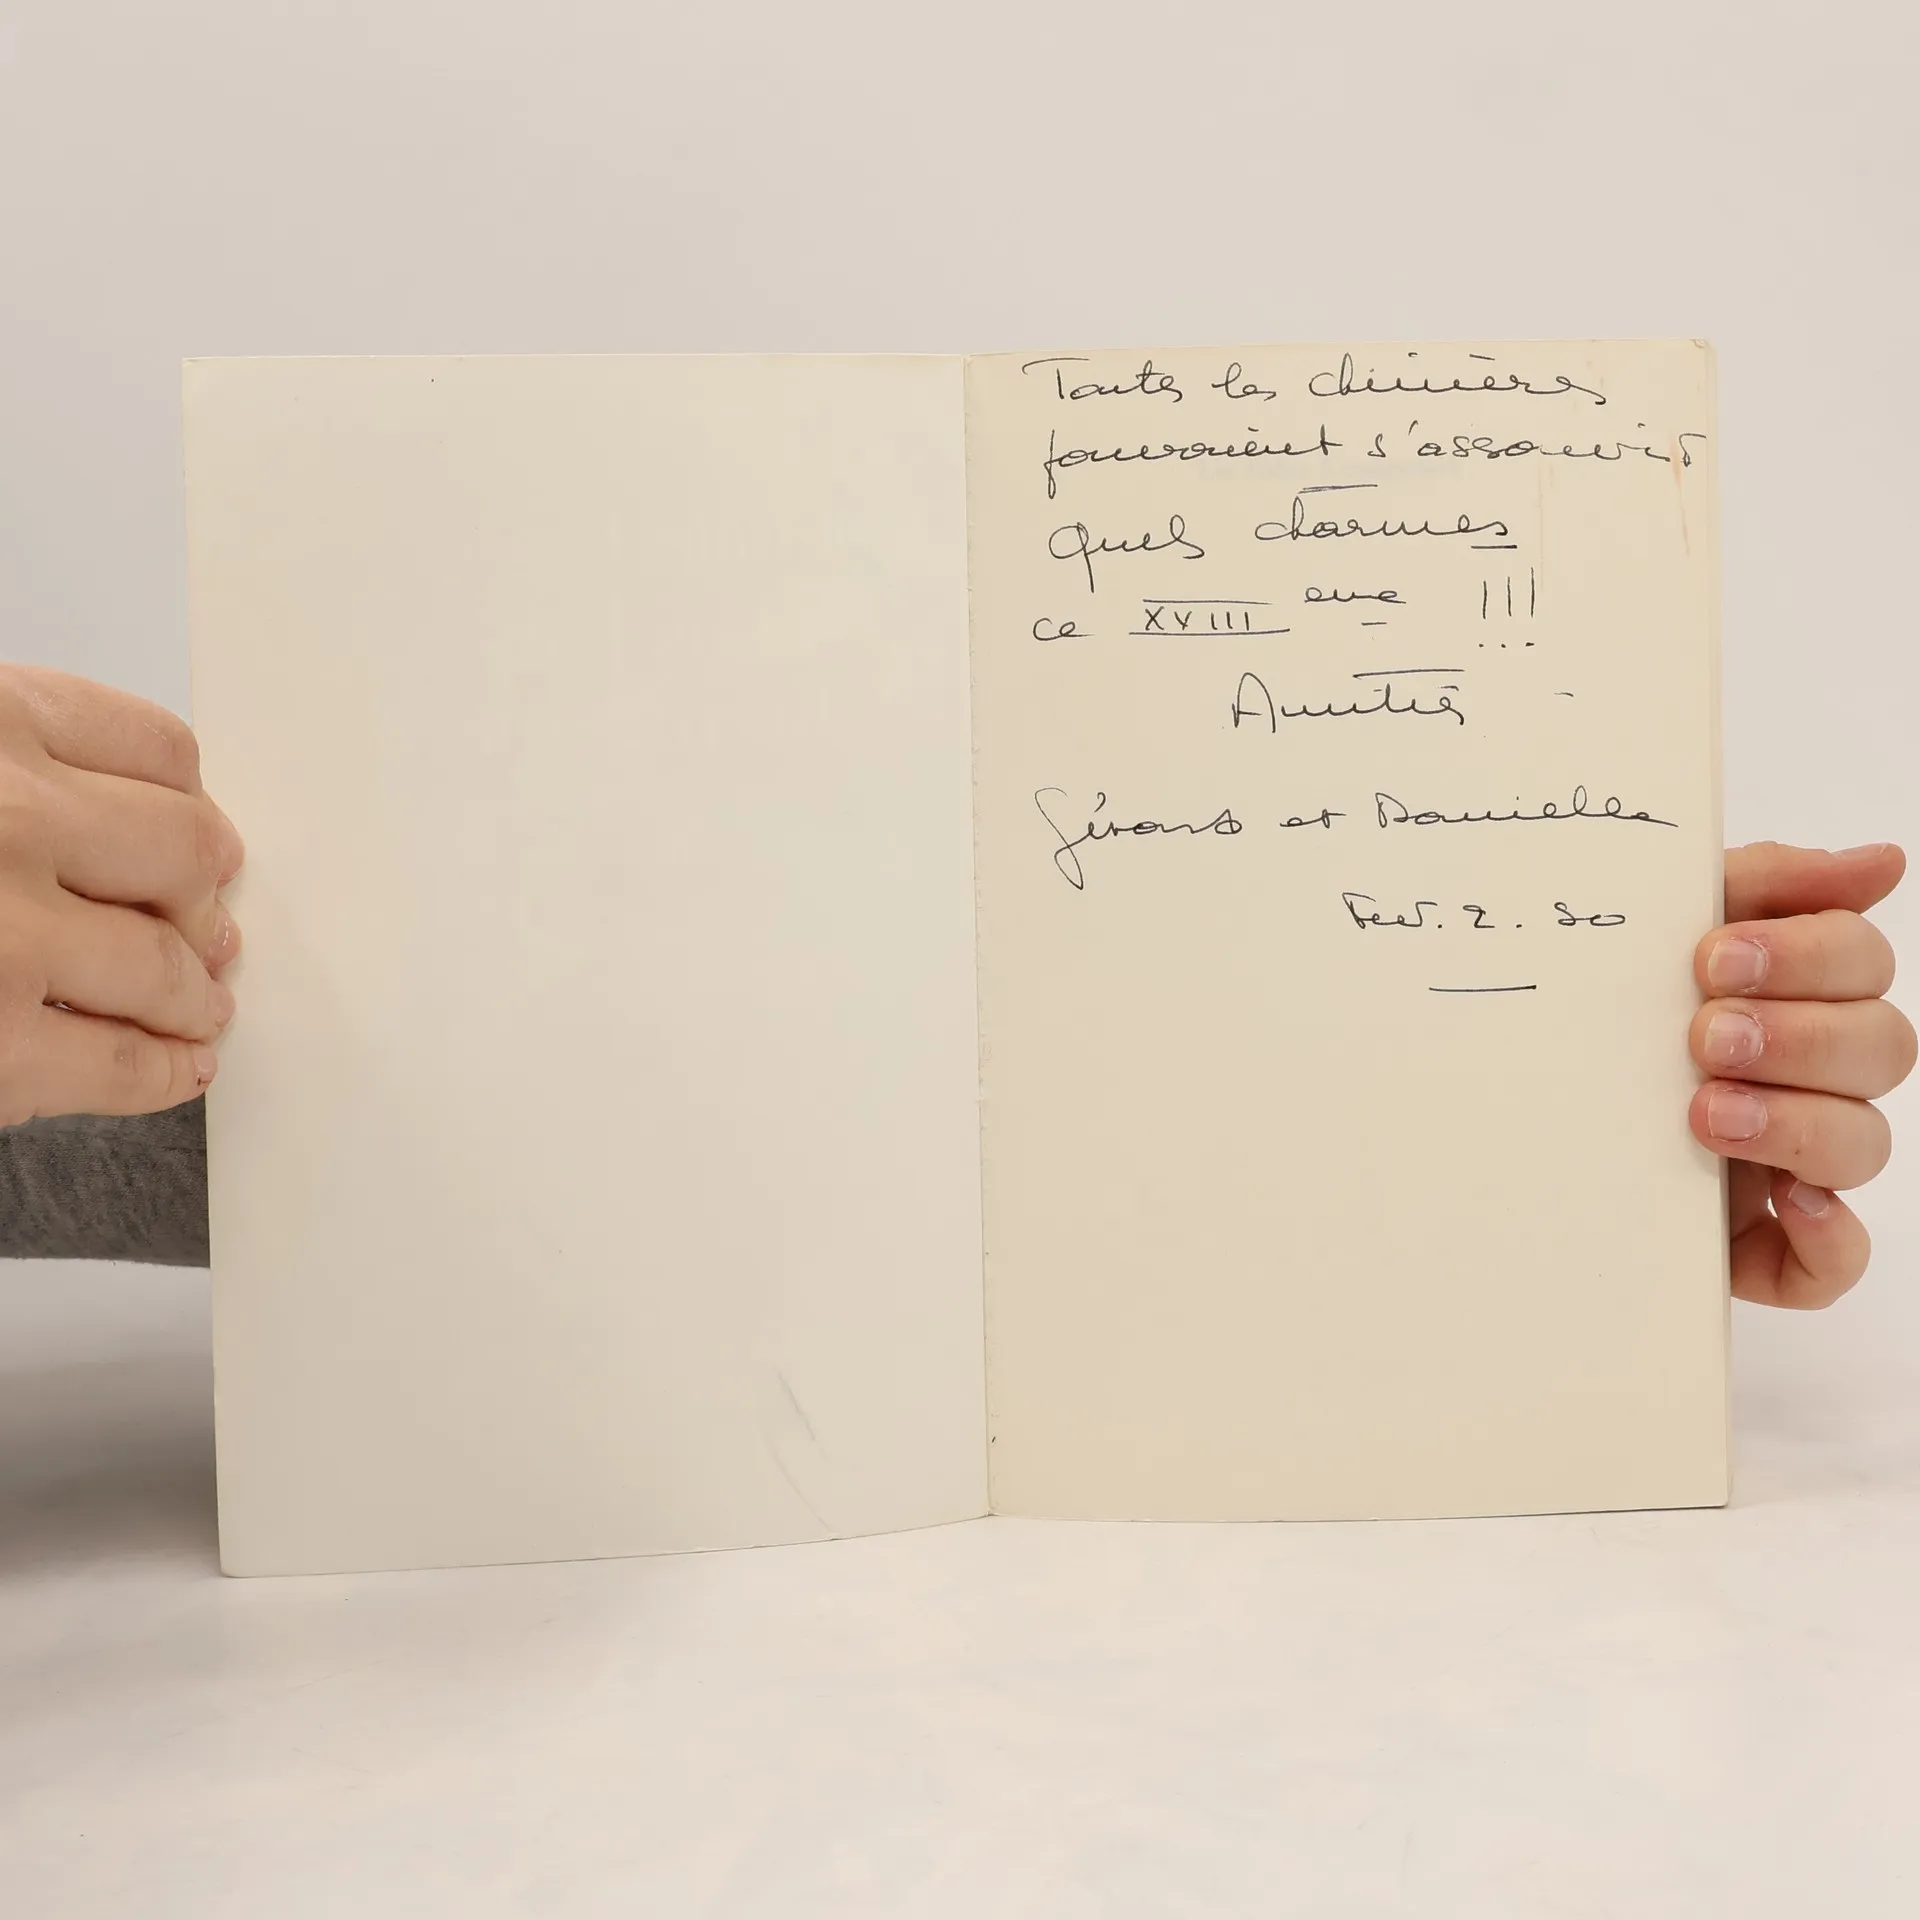 Toutes les chimères
pouvaient s'assouvir
Quels charmes
ce XVIII eme !!!
Amitiés -
Gérard et Danielle
Fev. 2. 80